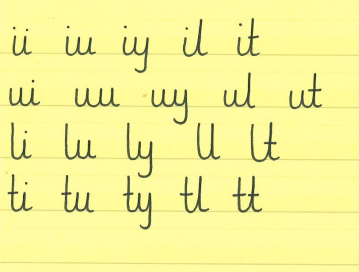 ii iu iy il it
ui uu uy ul ut
li lu ly ll lt
ti tu ty tl tt